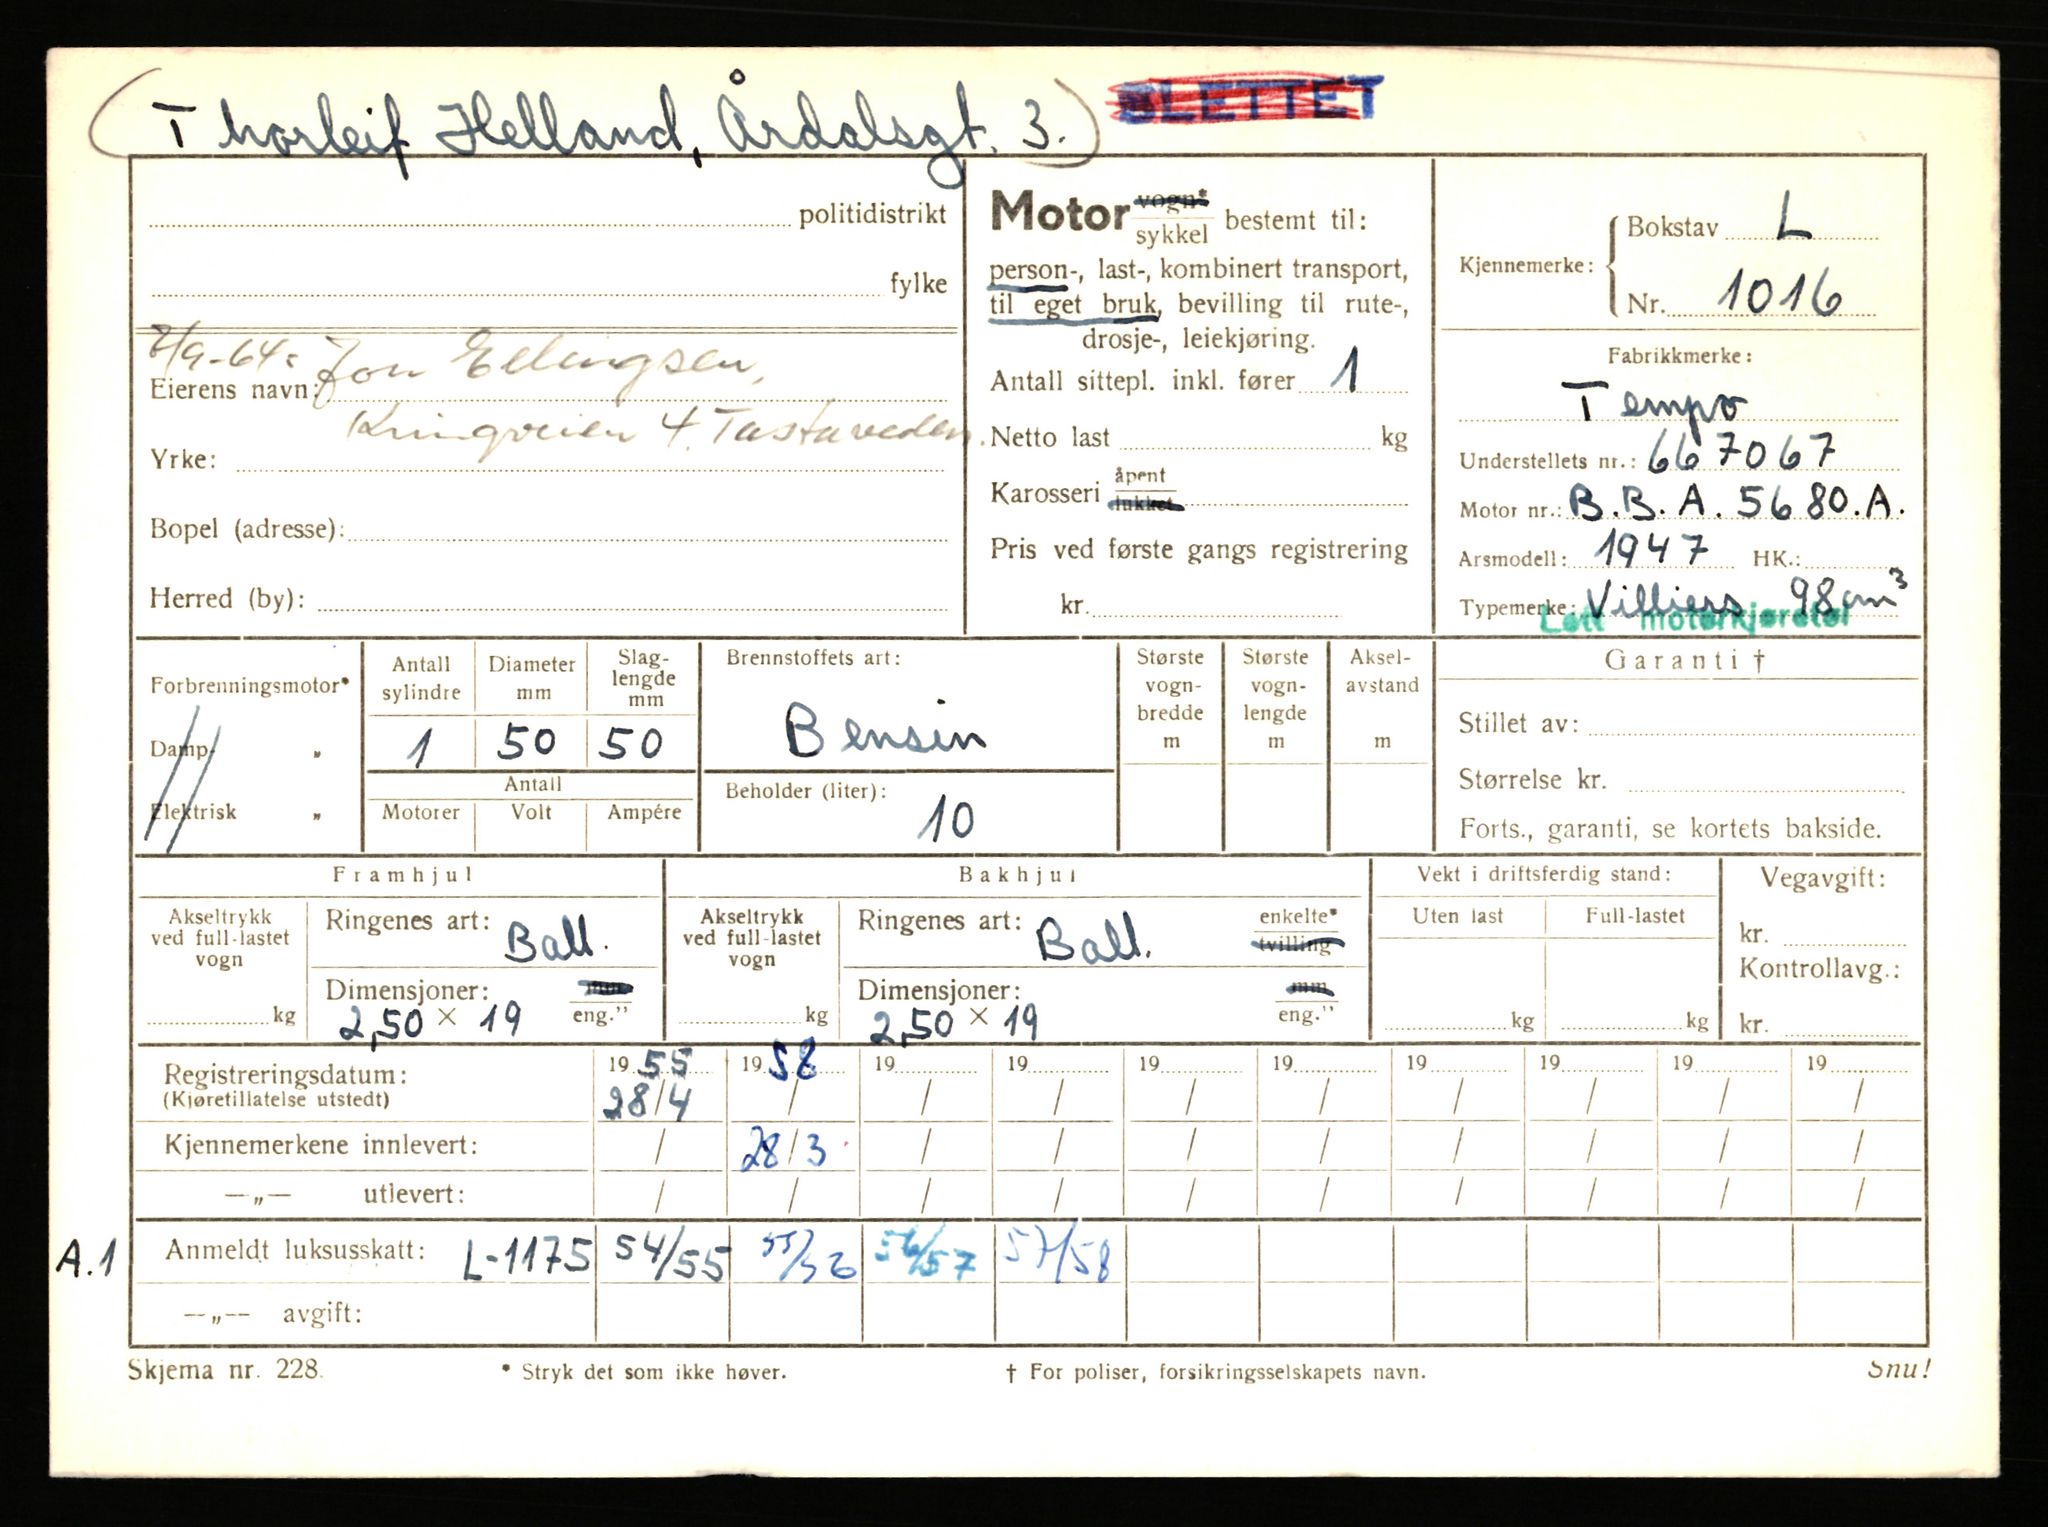 (Thorleif Helland, Årdalsgt. 3.) SLETTET
politidistrikt
fylke
7/9-64: Jon Ellingsen,
Eierens navn:
Kringveien 4, Tastaveden.
Yrke:
Bopel (adresse):
Herred (by):
Motor vogn* sykkel bestemt til:
person-, last-, kombinert transport,
til eget bruk, bevilling til rute-,
drosje-, leiekjøring.
Antall sittepl. inkl. fører 1
Netto last kg
Karosseri åpent lukket
Pris ved første gangs registrering
kr.
Kjennemerke: Bokstav L
Nr. 1016
Fabrikkmerke:
Tempo
Understellets nr.: 667067
Motor nr.: B.B.A. 5680.A.
Arsmodell: 1947 HK.:
Typemerke: Villiers 98 cm³
Lett motorkjøretøi
Forbrenningsmotor*
Damp- „
Elektrisk „
Antall sylindre
1
Diameter mm
50
Slag-lengde mm
50
Antall
Motorer Volt Ampére
Brennstoffets art:
Bensin
Beholder (liter):
10
Største vogn-bredde m
Største vogn-lengde m
Aksel-avstand m
Garanti †
Stillet av:
Størrelse kr.
Forts., garanti, se kortets bakside.
Framhjul
Akseltrykk ved full-lastet vogn
kg
Ringenes art: Ball.
Dimensjoner: mm eng."
2,50 × 19
Bakhjul
Akseltrykk ved full-lastet vogn
kg
Ringenes art: Ball. enkelte* tvilling
Dimensjoner: mm eng."
2,50 × 19
Vekt i driftsferdig stand:
Uten last Full-lastet
kg kg
Vegavgift:
kr.
Kontrollavg.:
kr.
Registreringsdatum: 19 55 19 58 19 19 19 19 19 19 19 19
(Kjøretillatelse utstedt) 28/4 / / / / / / / / /
Kjennemerkene innlevert: / 28/3 / / / / / / / /
—„— utlevert: / / / / / / / / / /
A.1 Anmeldt luksusskatt: L-1175 54/55 55/56 56/57 57/58
—„— avgift:
Skjema nr. 228. * Stryk det som ikke høver. † For poliser, forsikringsselskapets navn. Snu!